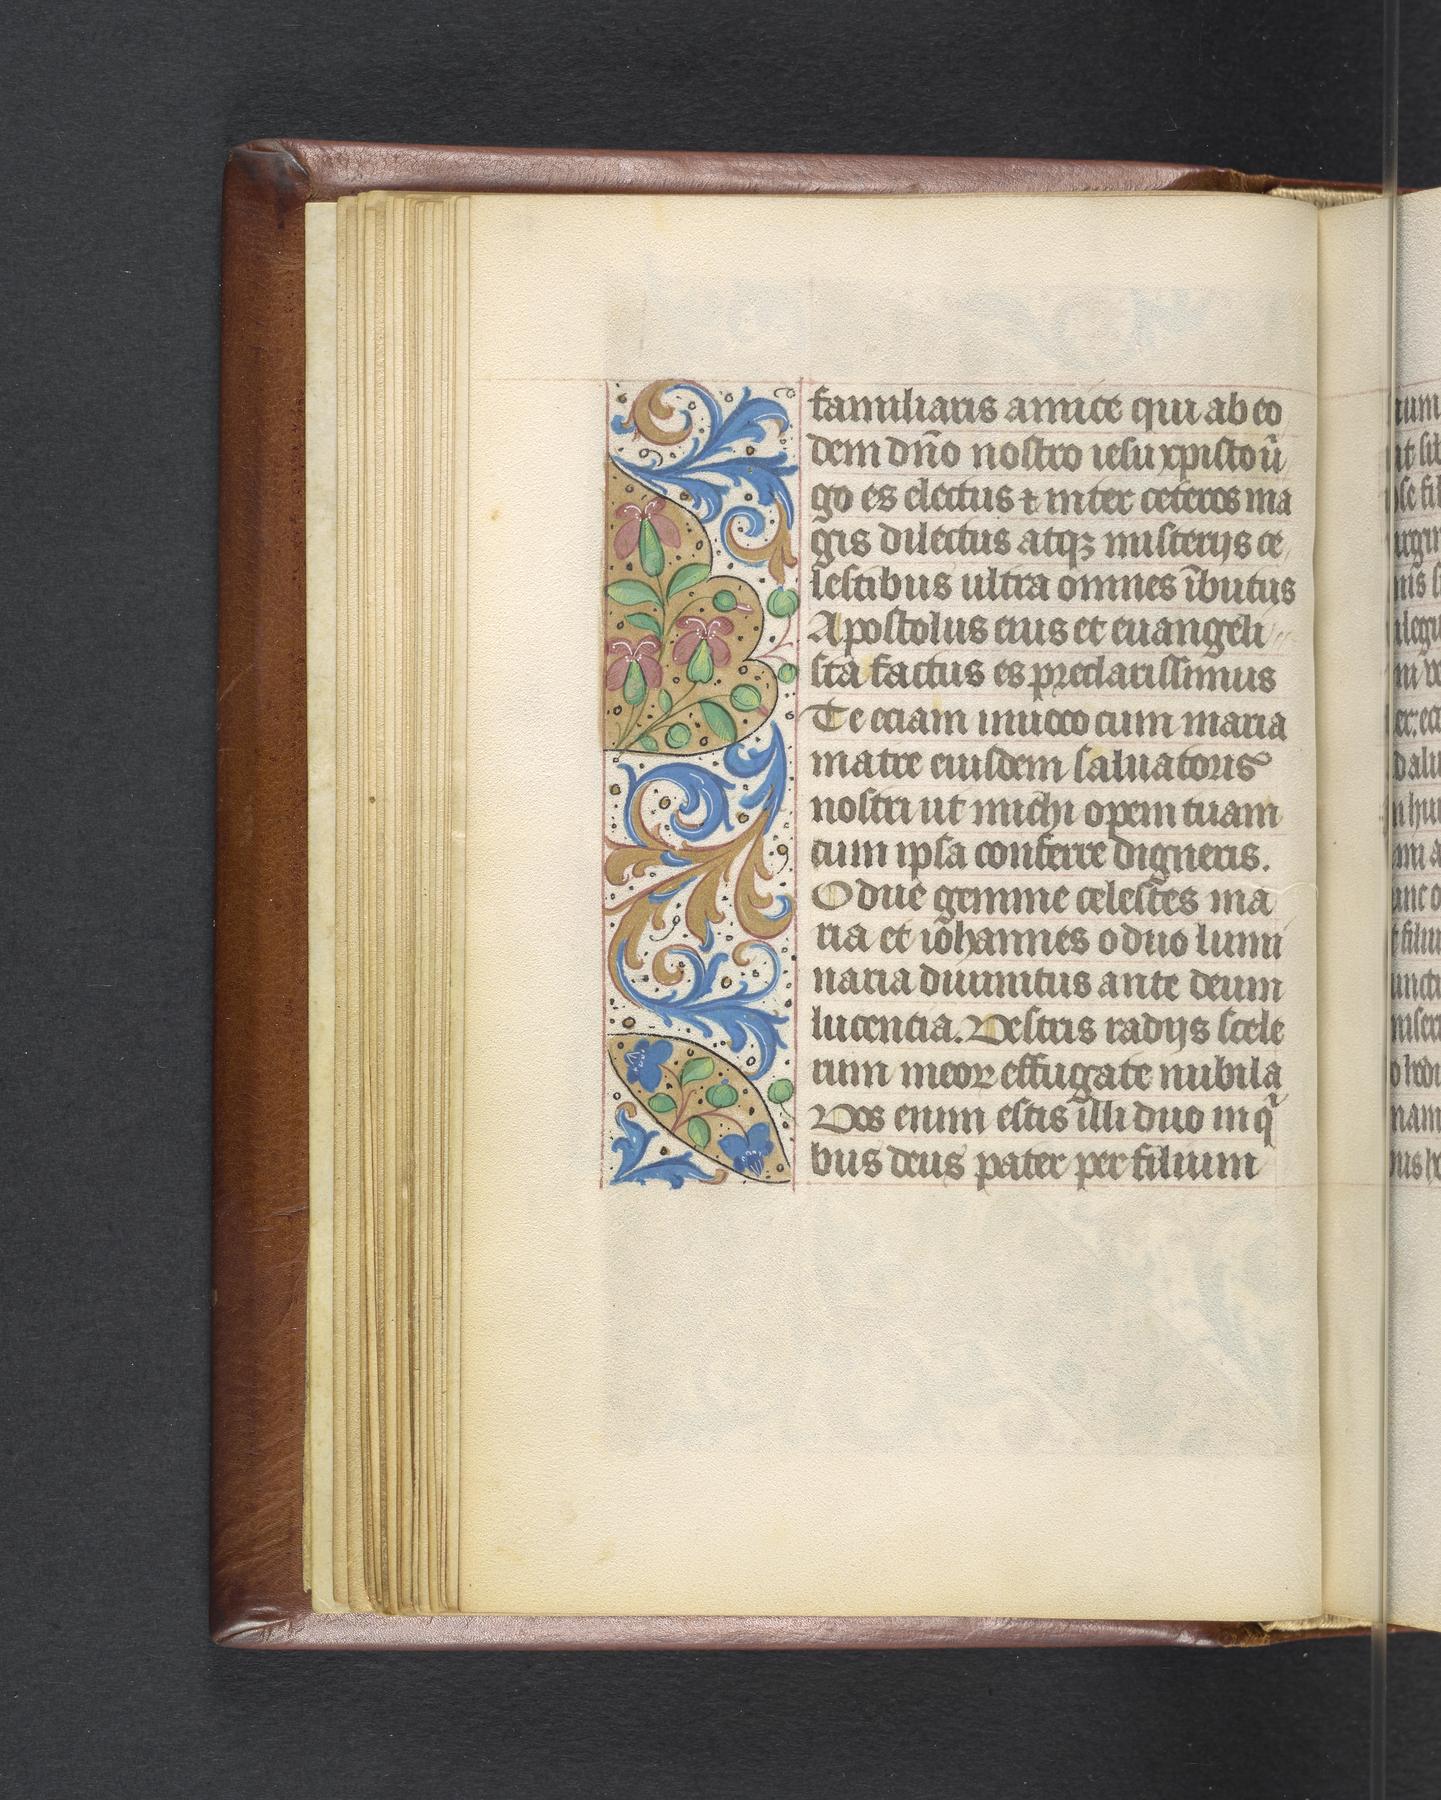 familiaris amice qui ab eo
dem dño nostro iesu xpisto ũ
go es electus ⁊ inter ceteros ma
gis dilectus atqꝫ misterijs ce
lestibus ultra omnes ĩbutus
Apostolus eius et euangeli
sta factus es preclarissimus
Te eciam inuoco cum maria
matre eiusdem saluatoris
nostri ut michi opem tuam
cum ipsa conferre digneris.
O due gemme celestes ma
ria et iõhannes o duo lumi
naria diuinitus ante deum
lucencia. Vestris radijs scele
rum meoꝝ effugate nubila
Vos enim estis illi duo in q̃
bus deus pater per filium